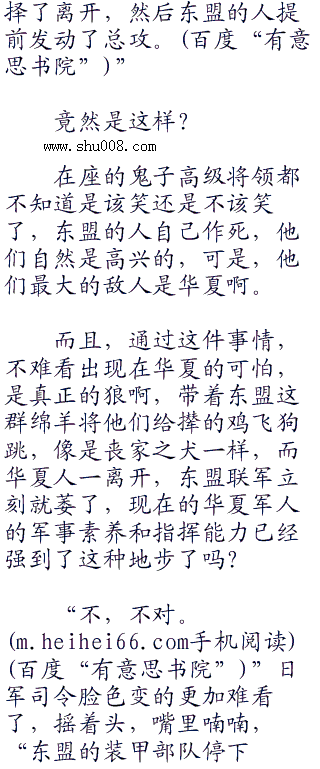 择了离开，然后东盟的人提
前发动了总攻。(百度“有意
思书院”)”
竟然是这样？
www.shu008.com
在座的鬼子高级将领都
不知道是该笑还是不该笑
了，东盟的人自己作死，他
们自然是高兴的，可是，他
们最大的敌人是华夏啊。
而且，通过这件事情，
不难看出现在华夏的可怕，
是真正的狼啊，带着东盟这
群绵羊将他们给撵的鸡飞狗
跳，像是丧家之犬一样，而
华夏人一离开，东盟联军立
刻就萎了，现在的华夏军人
的军事素养和指挥能力已经
强到了这种地步了吗？
“不，不对。
(m.heihei66.com手机阅读)
(百度“有意思书院”)”日
军司令脸色变的更加难看
了，摇着头，嘴里喃喃，
“东盟的装甲部队停下